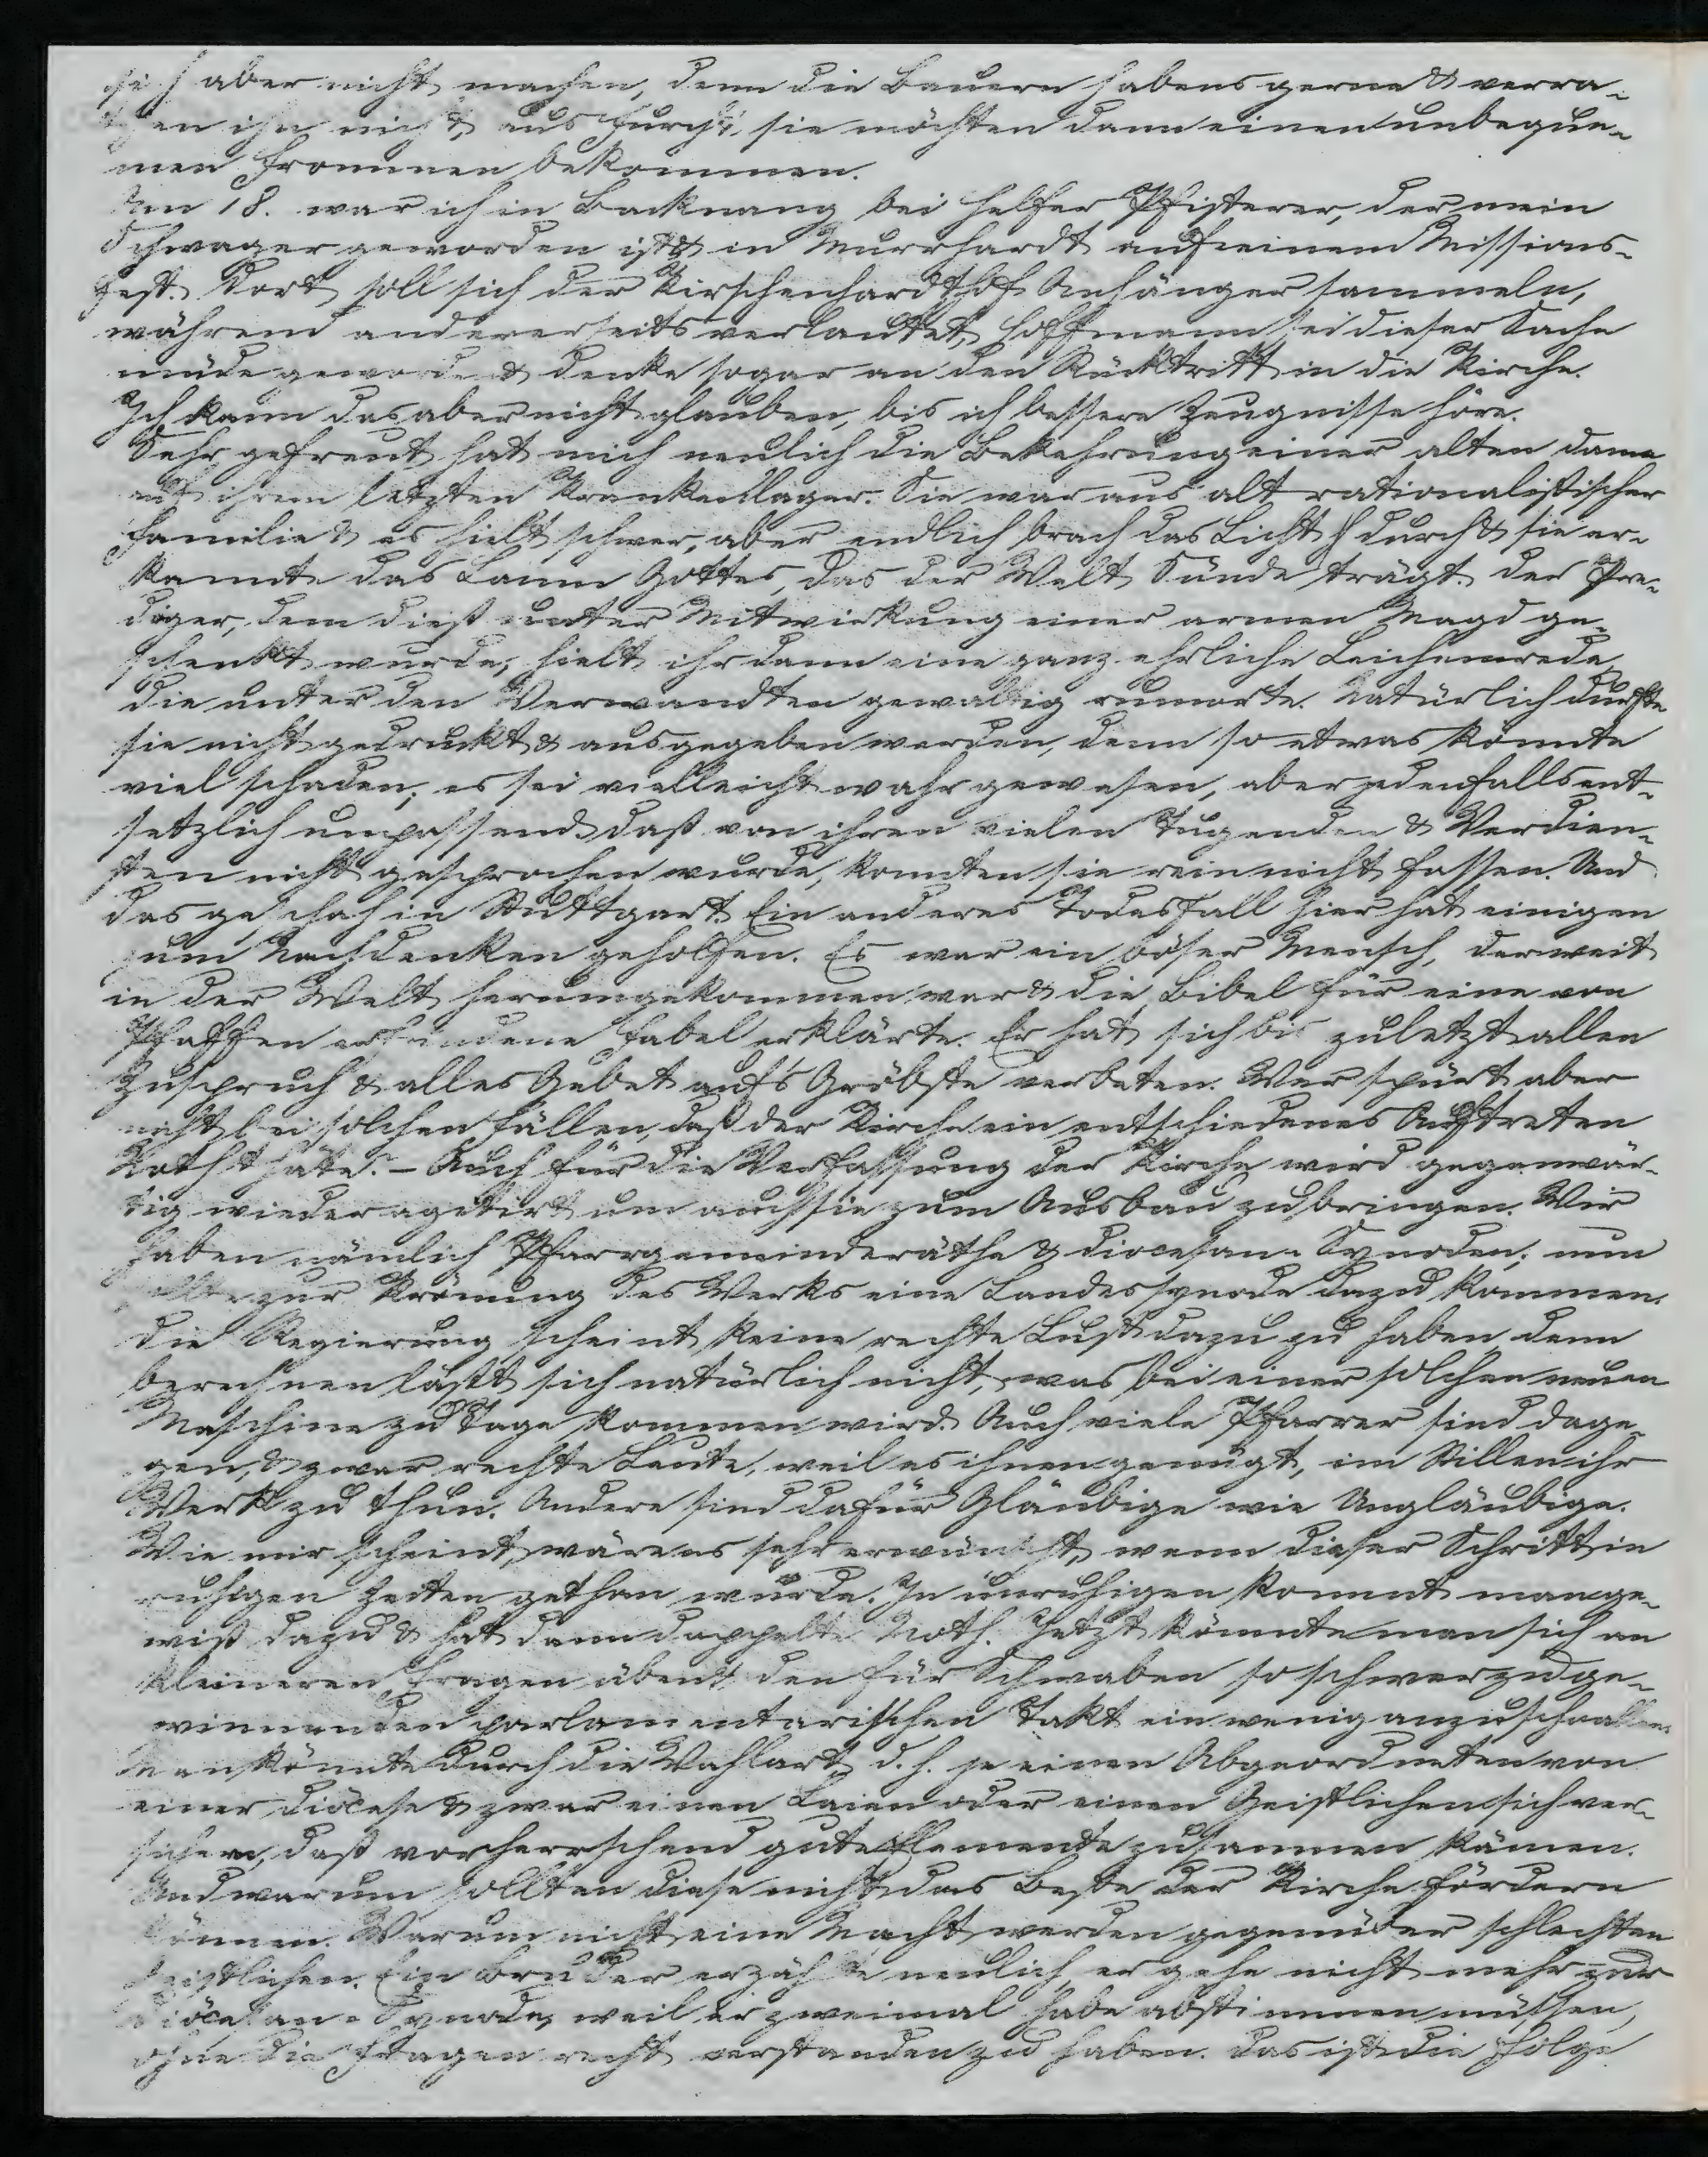 sich aber nicht machen, denn die Bauern habens gerne & verra-
then ihn nicht, aus Furcht, sie möchten dann einen unbeque-
men Frommen bekommen.
Am 18. war ich in Backnang bei Helfer Pfisterer, der mein
Schwager geworden ist & in Murrhardt auf einem Missions-
fest. Dort soll sich der Kirschenhardthof Anhänger sammeln,
während andererseits verlautet, Hoffmann sei dieser Sache
müde geworden & denke sogar an den Rücktritt in die Kirche.
Ich kann das aber nicht glauben, bis ich bessere Zeugnisse höre.
Sehr gefreut hat mich neulich die Bekehrung einer alten Dame
auf ihrem letzten Krankenlager. Sie war aus alt rationalistischer
Familie & es hielt schwer, aber endlich brach das Licht durch & sie er-
kannte das Lamm Gottes, das der Welt Sünde trägt. Der Pre-
diger, dem dieß unter Mitwirkung einer armen Magd ge-
schenkt wurde, hielt ihr dann eine ganz ehrliche Leichenrede,
die unter den Verwandten gewaltig rumorte. Natürlich durfte
sie nicht gedruckt & ausgegeben werden, denn so etwas könnte
viel schaden; es sei vielleicht wahr gewesen, aber jedenfalls ent-
setzlich unpassend. daß von ihren vielen Tugenden & Verdien-
sten nicht gesprochen wurde, konnten sie rein nicht fassen. Und
das geschah in Stuttgart. Ein anderer Todesfall hier hat einigen
zum Nachdenken geholfen. Es war ein böser Mensch, der weit
in der Welt herumgekommen war & die Bibel für eine von
Pfaffen erfundene Fabel erklärte. Er hat sich bis zuletzt allen
Zuspruch & alles Gebet aufs Gröbste verbeten. Wer spürt aber
nicht bei solchen Fällen, daß der Kirche ein entschiedenes Auftreten
Noth thäte. - Auch für die Verfassung der Kirche wird gegenwär-
tig wieder agitirt um auch sie zum Ausbau zu bringen. Wir
haben nämlich Pfarrgemeinderäthe & Diocesan-Synoden; nun
sollte zur Krönung des Werks eine Landessynode dazu kommen.
Die Regierung scheint keine rechte Lust dazu zu haben, denn
berechnen läßt sich natürlich nicht, was bei einer solchen neuen
Maschine zu Tage kommen wird. Auch viele Pfarrer sind dage-
gen, & zwar rechte Leute, weil es ihnen genügt, im Stillen ihr
Werk zu thun. Andere sind dafür Gläubige wie Ungläubige.
Wie mir scheint, wäre es sehr erwünscht, wenn dieser Schritt in
ruhigen Zeiten gethan würde. In unruhigen kommt man ge-
wiß dazu & hat dann doppelte Noth. Jetzt könnte man sich an
kleineren Fragen üben & den für Schwaben so schwer zu ge-
winnenden parlamentarischen Takt ein wenig anzuschaffen
Man könnte durch die Wahlart, d. h. je einen Abgeordneten von
einer Diöcese & zwar einen Laien oder einen Geistlichen sich ver-
sichern, daß vorherrschend gute Elemente zusammen kämen.
Und warum sollten diese nicht das Beste der Kirche fördern
können. Warum nicht eine Macht werden gegenüber schlechten
Geistlichen. Ein Bruder erzählte neulich, er gehe nicht mehr zur
Diöcesan-Synode, weil er zweimal habe abstimmen müssen,
ohne die Fragen recht verstanden zu haben. Das ist die Folge